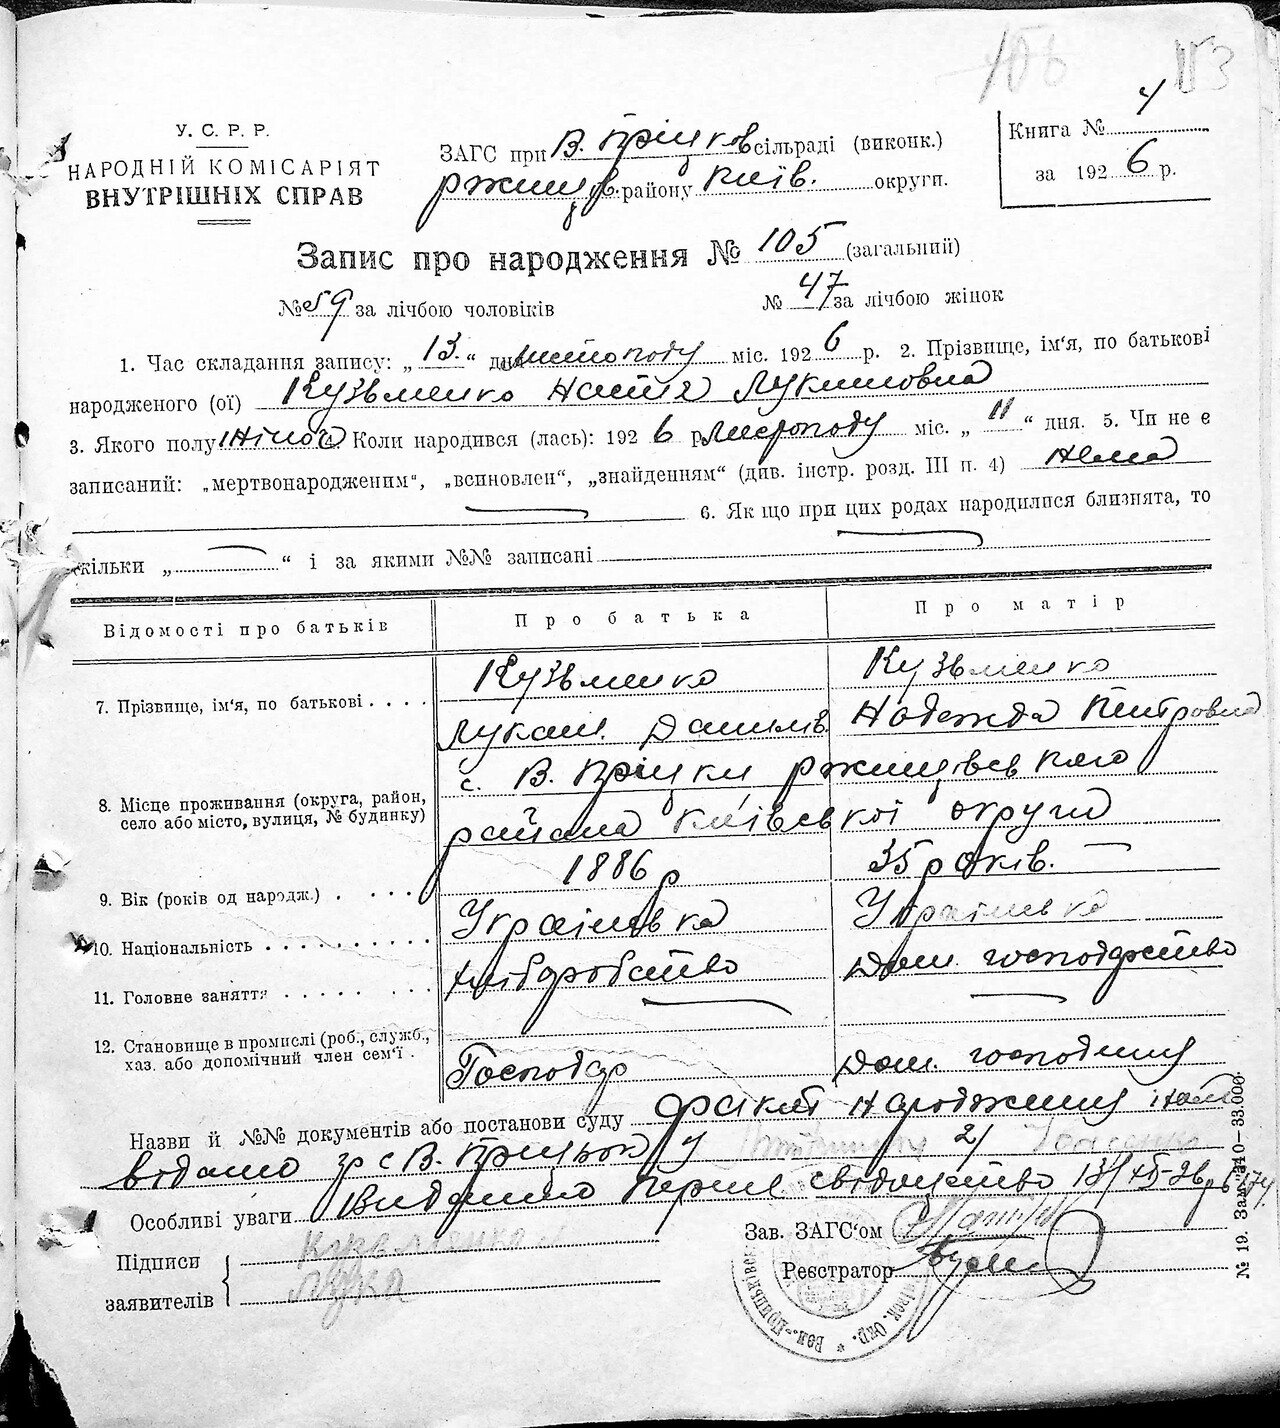 153
У. С. Р. Р.
НАРОДНІЙ КОМІСАРІЯТ
ВНУТРІШНІХ СПРАВ
ЗАГС при В. Пріцков сільраді (виконк.)
Ржищів. району Київ. округи.
Книга № 4
за 1926 р.
Запис про народження № 105 (загальний)
№ 59 за лічбою чоловіків № 47 за лічбою жінок
1. Час складання запису: „ 13. “ дня листопаду міс. 1926 р. 2. Прізвище, ім'я, по батькові
народженого (ої) Кузьменко Настя Лукишовна
3. Якого полу жіноч. 4. Коли народився (лась): 1926 р. листопаду міс. „ 11 “ дня. 5. Чи не є
записаний: „мертвонародженим“, „всиновлен“, „знайденням“ (див. інстр. розд. III п. 4) нема
6. Якщо при цих родах народилися близнята, то
скільки „ — “ і за якими №№ записані —
Відомості про батьків Про батька Про матір
7. Прізвище, ім'я, по батькові Кузьменко Кузьменко
Лукаш. Данилів. Надежда Петровна
8. Місце проживання (округа, район, село або місто, вулиця, № будинку) с. В. Пріцки Ржищівського
района Київської округи
9. Вік (років од народж.) 1886 р 35 років. —
10. Національність Українська Українська
11. Головне заняття хліборобство Дом. господарство
12. Становище в промислі (роб., служб., хаз. або допомічний член сем'ї Господар Дом. господиня
Назви й №№ документів або постанови суду факт народження
видано
Особливі уваги Видано перше свідоцтво
Підписи заявителів Кузьменко
Лука
Зав. ЗАГС'ом
Реєстратор
№ 19. Зам. 340—33.000.